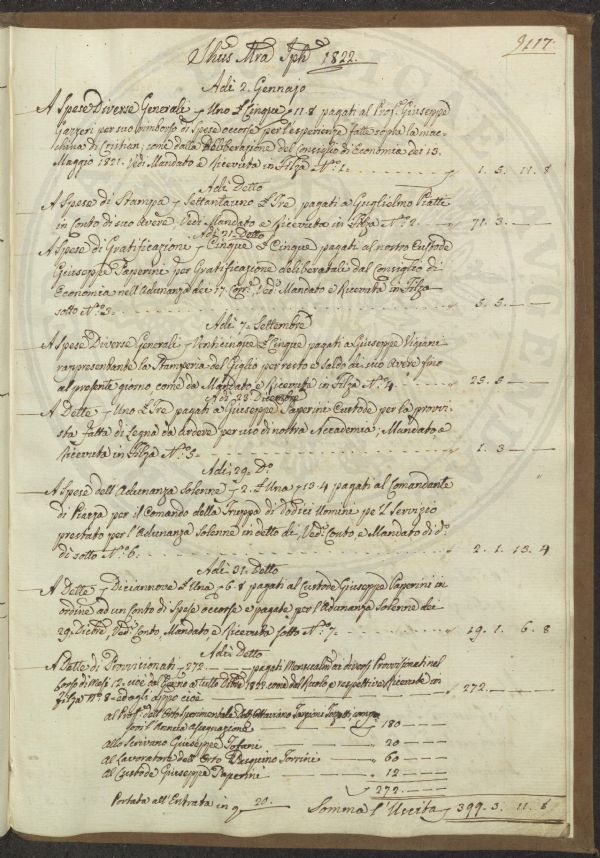 9117.
Jhus Mra Jph 1822.
Adi 2. Gennajo
A Spese Diverse Generali Uno £ Cinque 11.8 pagati al Prof. Giuseppe
Gazzeri per suo rimborso di Spese occorse per l'esperienze fatte sopra la mac=
china di Cristian, come dalla deliberazione del Consiglio di Economia dei 13.
Maggio 1821. Ved. Mandato e Ricevuta in Filza N.° 1. 1. 5. 11. 8
Adi Detto
A Spese di Stampa Settantauno £ Tre pagati a Guglielmo Piatti
in Conto di suo avere Ved. Mandato e Ricevuta in Filza N.° 2. 71. 3.
Adi 21. Detto
A Spese di Gratificazione Cinque £ Cinque pagati al nostro Custode
Giuseppe Paperini per Gratificazione deliberatali dal Consiglio di
Economia nell'Adunanza dei 17. Corr. Ved. Mandato e Ricevuta in Filza
sotto N.° 3. 5. 5.
Adi 7. Settembre
A Spese Diverse Generali Venticinque £ Cinque pagati a Giuseppe Vigiani
rappresentante la Stamperia del Giglio per resto e saldo di suo avere fino
al presente giorno come da Mandato e Ricevuta in Filza N.° 4 25. 5
Adi 28. Dicembre
A Dette Uno £ Tre pagati a Giuseppe Paperini Custode per la provvi=
sta fatta di Legna da ardere per uso di nostra Accademia; Mandato e
Ricevuta in Filza N.° 5. 1. 3
Adi 29. D.°
A Spese dell'Adunanza Solenne 2. £ Una 13.4 pagati al Comandante
di Piazza per il Comando della Truppa di Dodici Uomini pe'l Servizio
prestato per l'Adunanza Solenne in detto dì, Ved. Conto e Mandato di d.°
dì sotto N.° 6. 2. 1. 13. 4
Adi 31. Detto
A Dette Diciannove £ Una 6.8 pagati al Custode Giuseppe Paperini in
ordine ad un Conto di Spese occorse e pagate per l'Adunanza Solenne dei
29. Dicbre, Ved. Conto Mandato e Ricevuta sotto N.° 7. 19. 1. 6. 8
Adi Detto
A Dette di Provvisionati 272. pagati Mensualmte a diversi Provvisionati nel
Corso di Mesi 12. cioè da Gennajo a tutto Dicbre 1822. come dal Ruolo e respettive Ricevute in
Filza N.° 8. ed agli appo cioè 272.
al Prof. dell'Orto Sperimentale Dott. Ottaviano Targioni Tozzetti
l'Annua Assegnazione 180
allo Scrivano Giuseppe Tofani 20
al Lavoratore dell'Orto Torrini 60
al Custode Giuseppe Paperini 12
272.
Portata all'Entrata in 20. Somma l'Uscita 399. 3. 11. 8